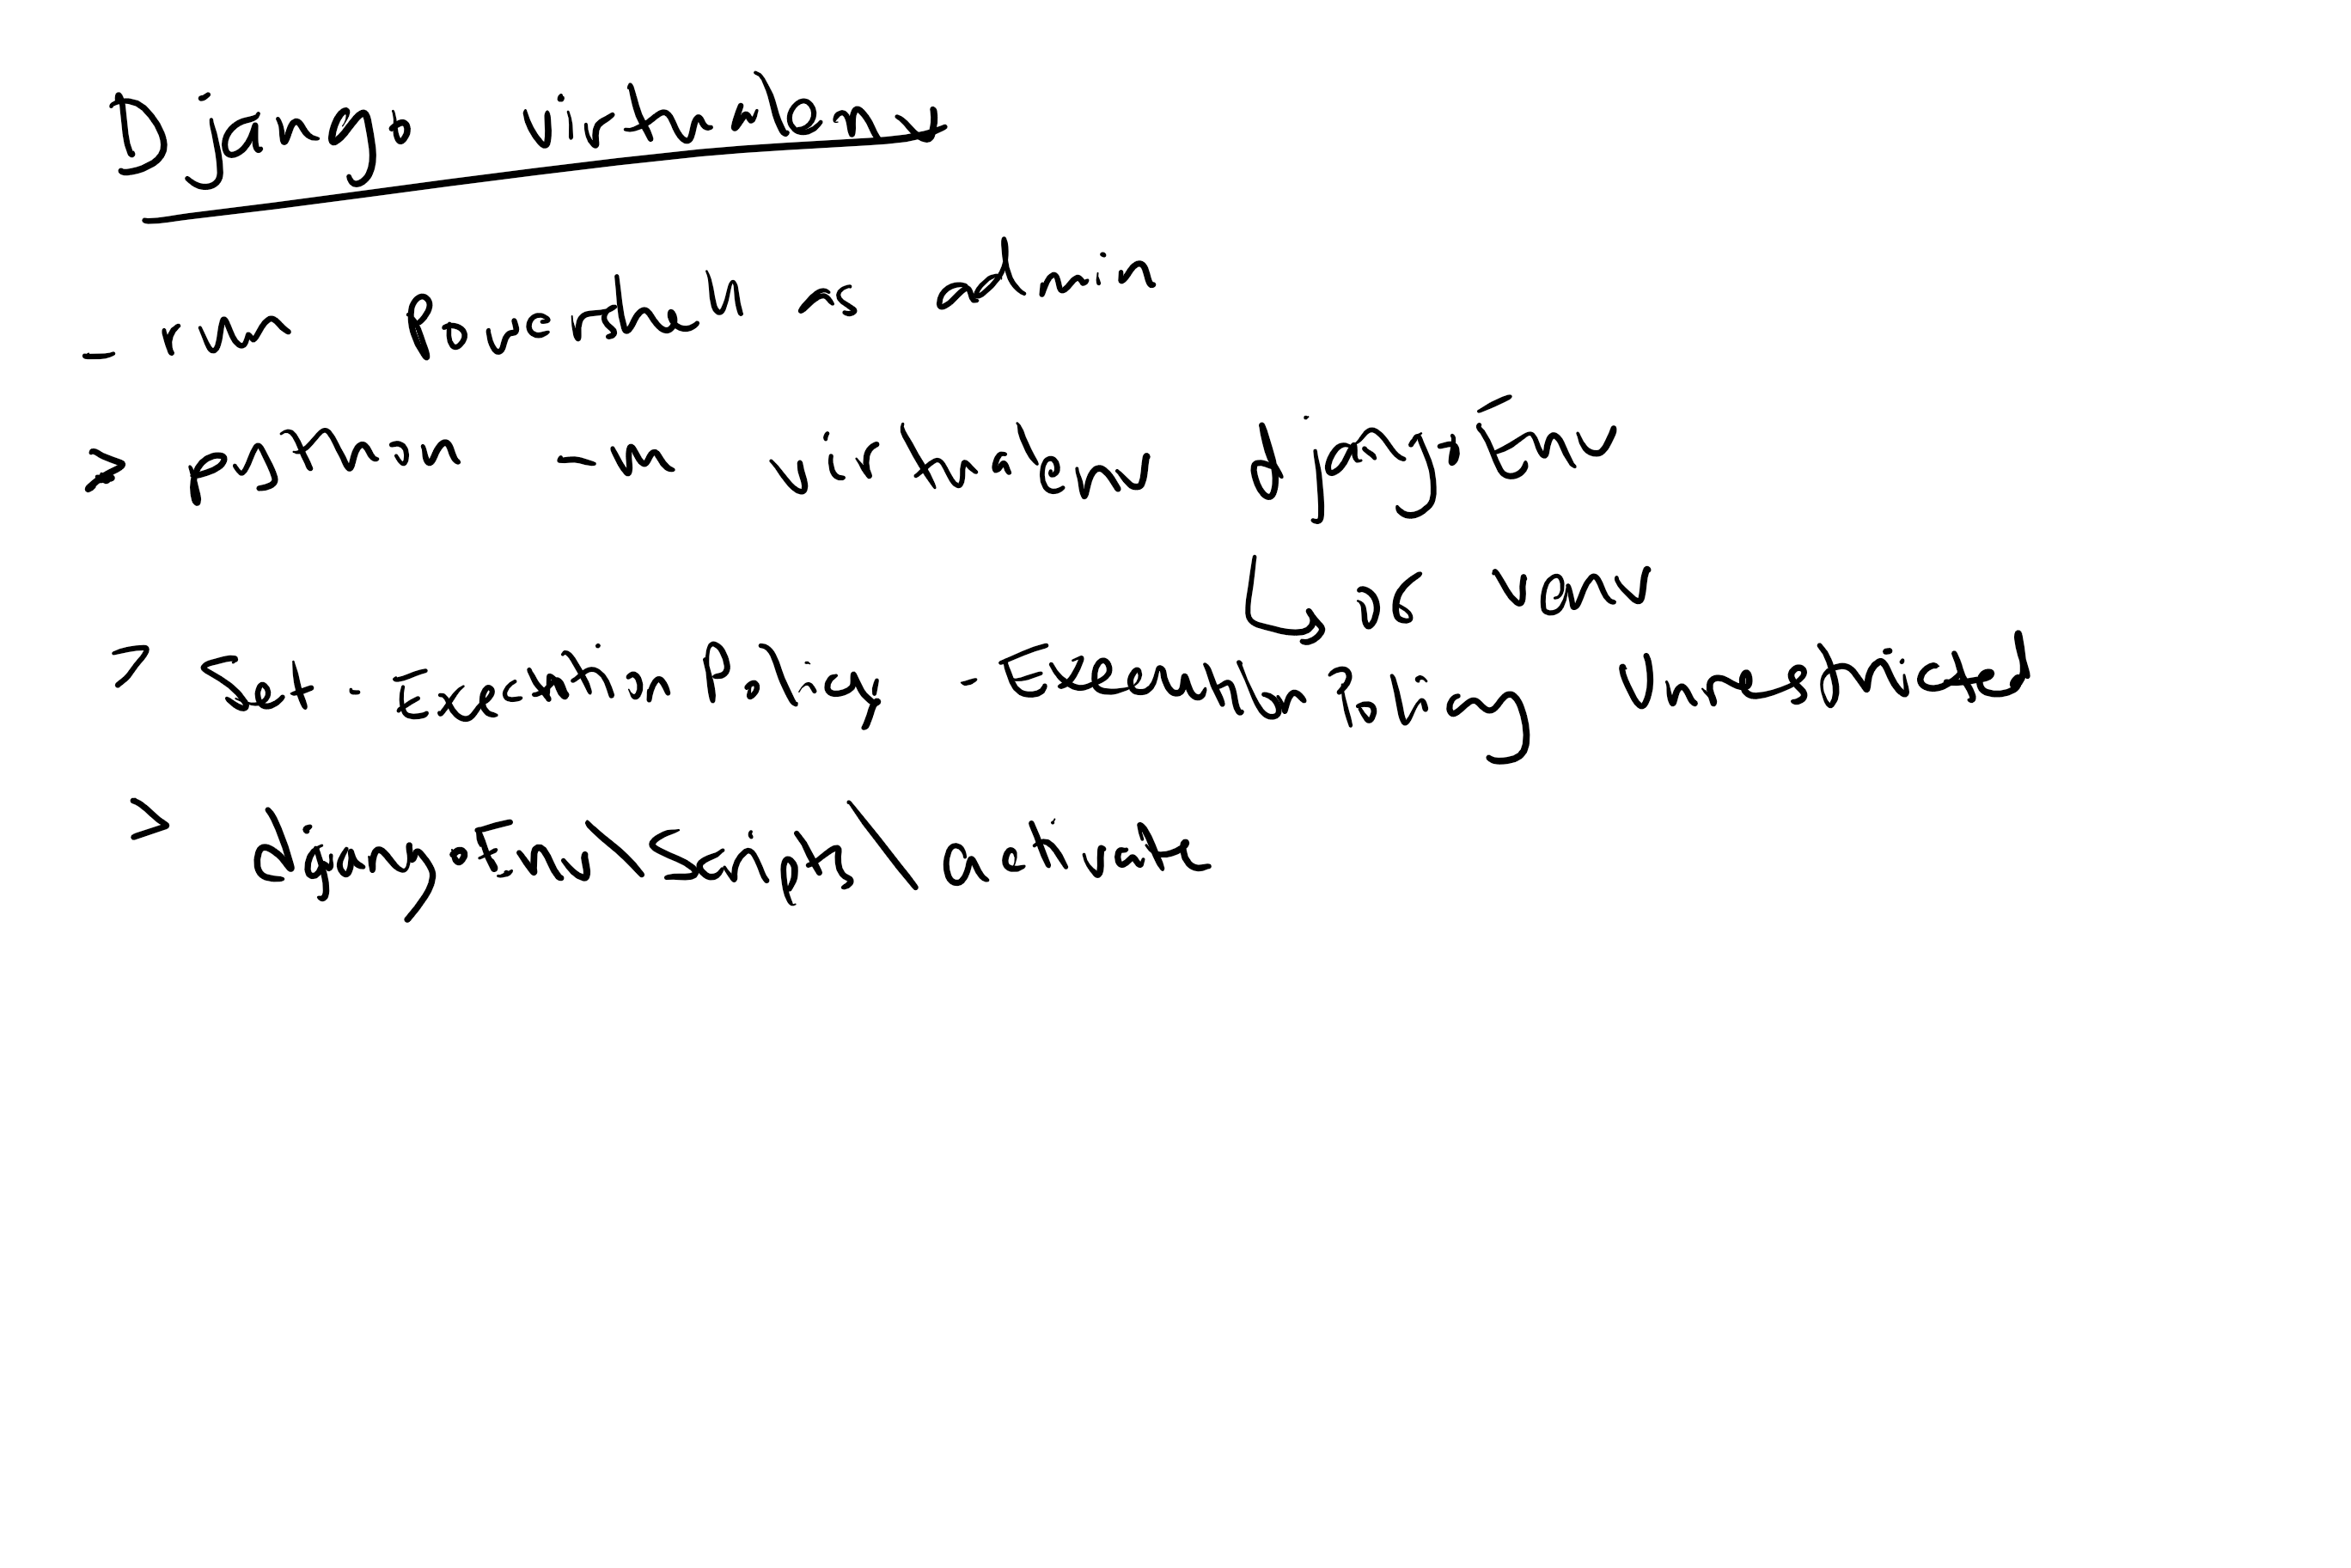 Django virtualenv
- run Powershell as admin
> python -m virtualenv djangoEnv
↳ or venv
> Set-ExecutionPolicy -ExecutionPolicy Unrestricted
> djangoEnv\Scripts\activate